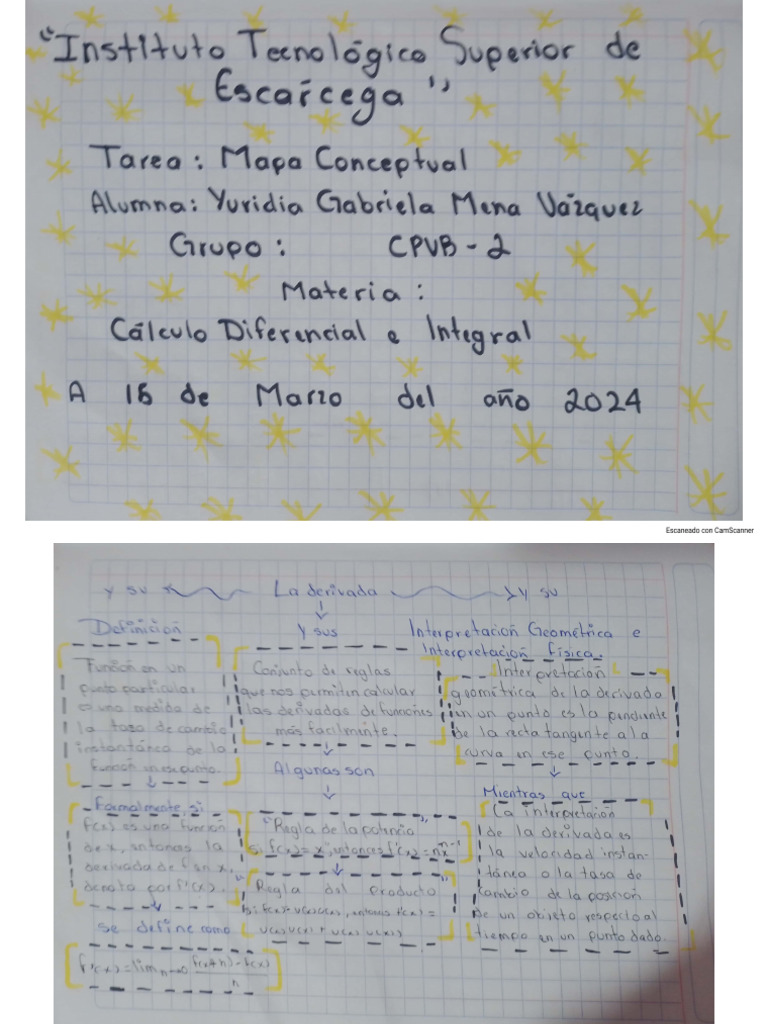 "Instituto Tecnológico Superior de
Escárcega"
Tarea: Mapa Conceptual
Alumna: Yuridia Gabriela Mena Vázquez
Grupo: CPVB-2
Materia:
Cálculo Diferencial e Integral
A 15 de Marzo del año 2024
Escaneado con CamScanner
y su La derivada y su
Definición
Función en un
punto particular
es una medida de
la tasa de cambio
instantánea de la
función en ese punto.
Formalmente, si
f(x) es una función
de x, entonces la
derivada de f en x,
denota por f'(x).
se define como
f'(x) = lim h→0 f(x+h) - f(x)
h
y sus
Conjunto de reglas
que nos permiten calcular
las derivadas de funciones
más facilmente.
Algunas son
"Regla de la potencia"
si f(x) = x^n, entonces f'(x) = nx^n-1
"Regla del producto"
si f(x) = u(x)v(x), entonces f'(x) =
Interpretación Geométrica e
Interpretación física.
Interpretación
geométrica de la derivada
en un punto es la pendiente
de la recta tangente a la
curva en ese punto.
Mientras que
La interpretación
de la derivada es
la velocidad instan-
tánea o la tasa de
cambio de la posición
de un objeto respecto al
tiempo en un punto dado.